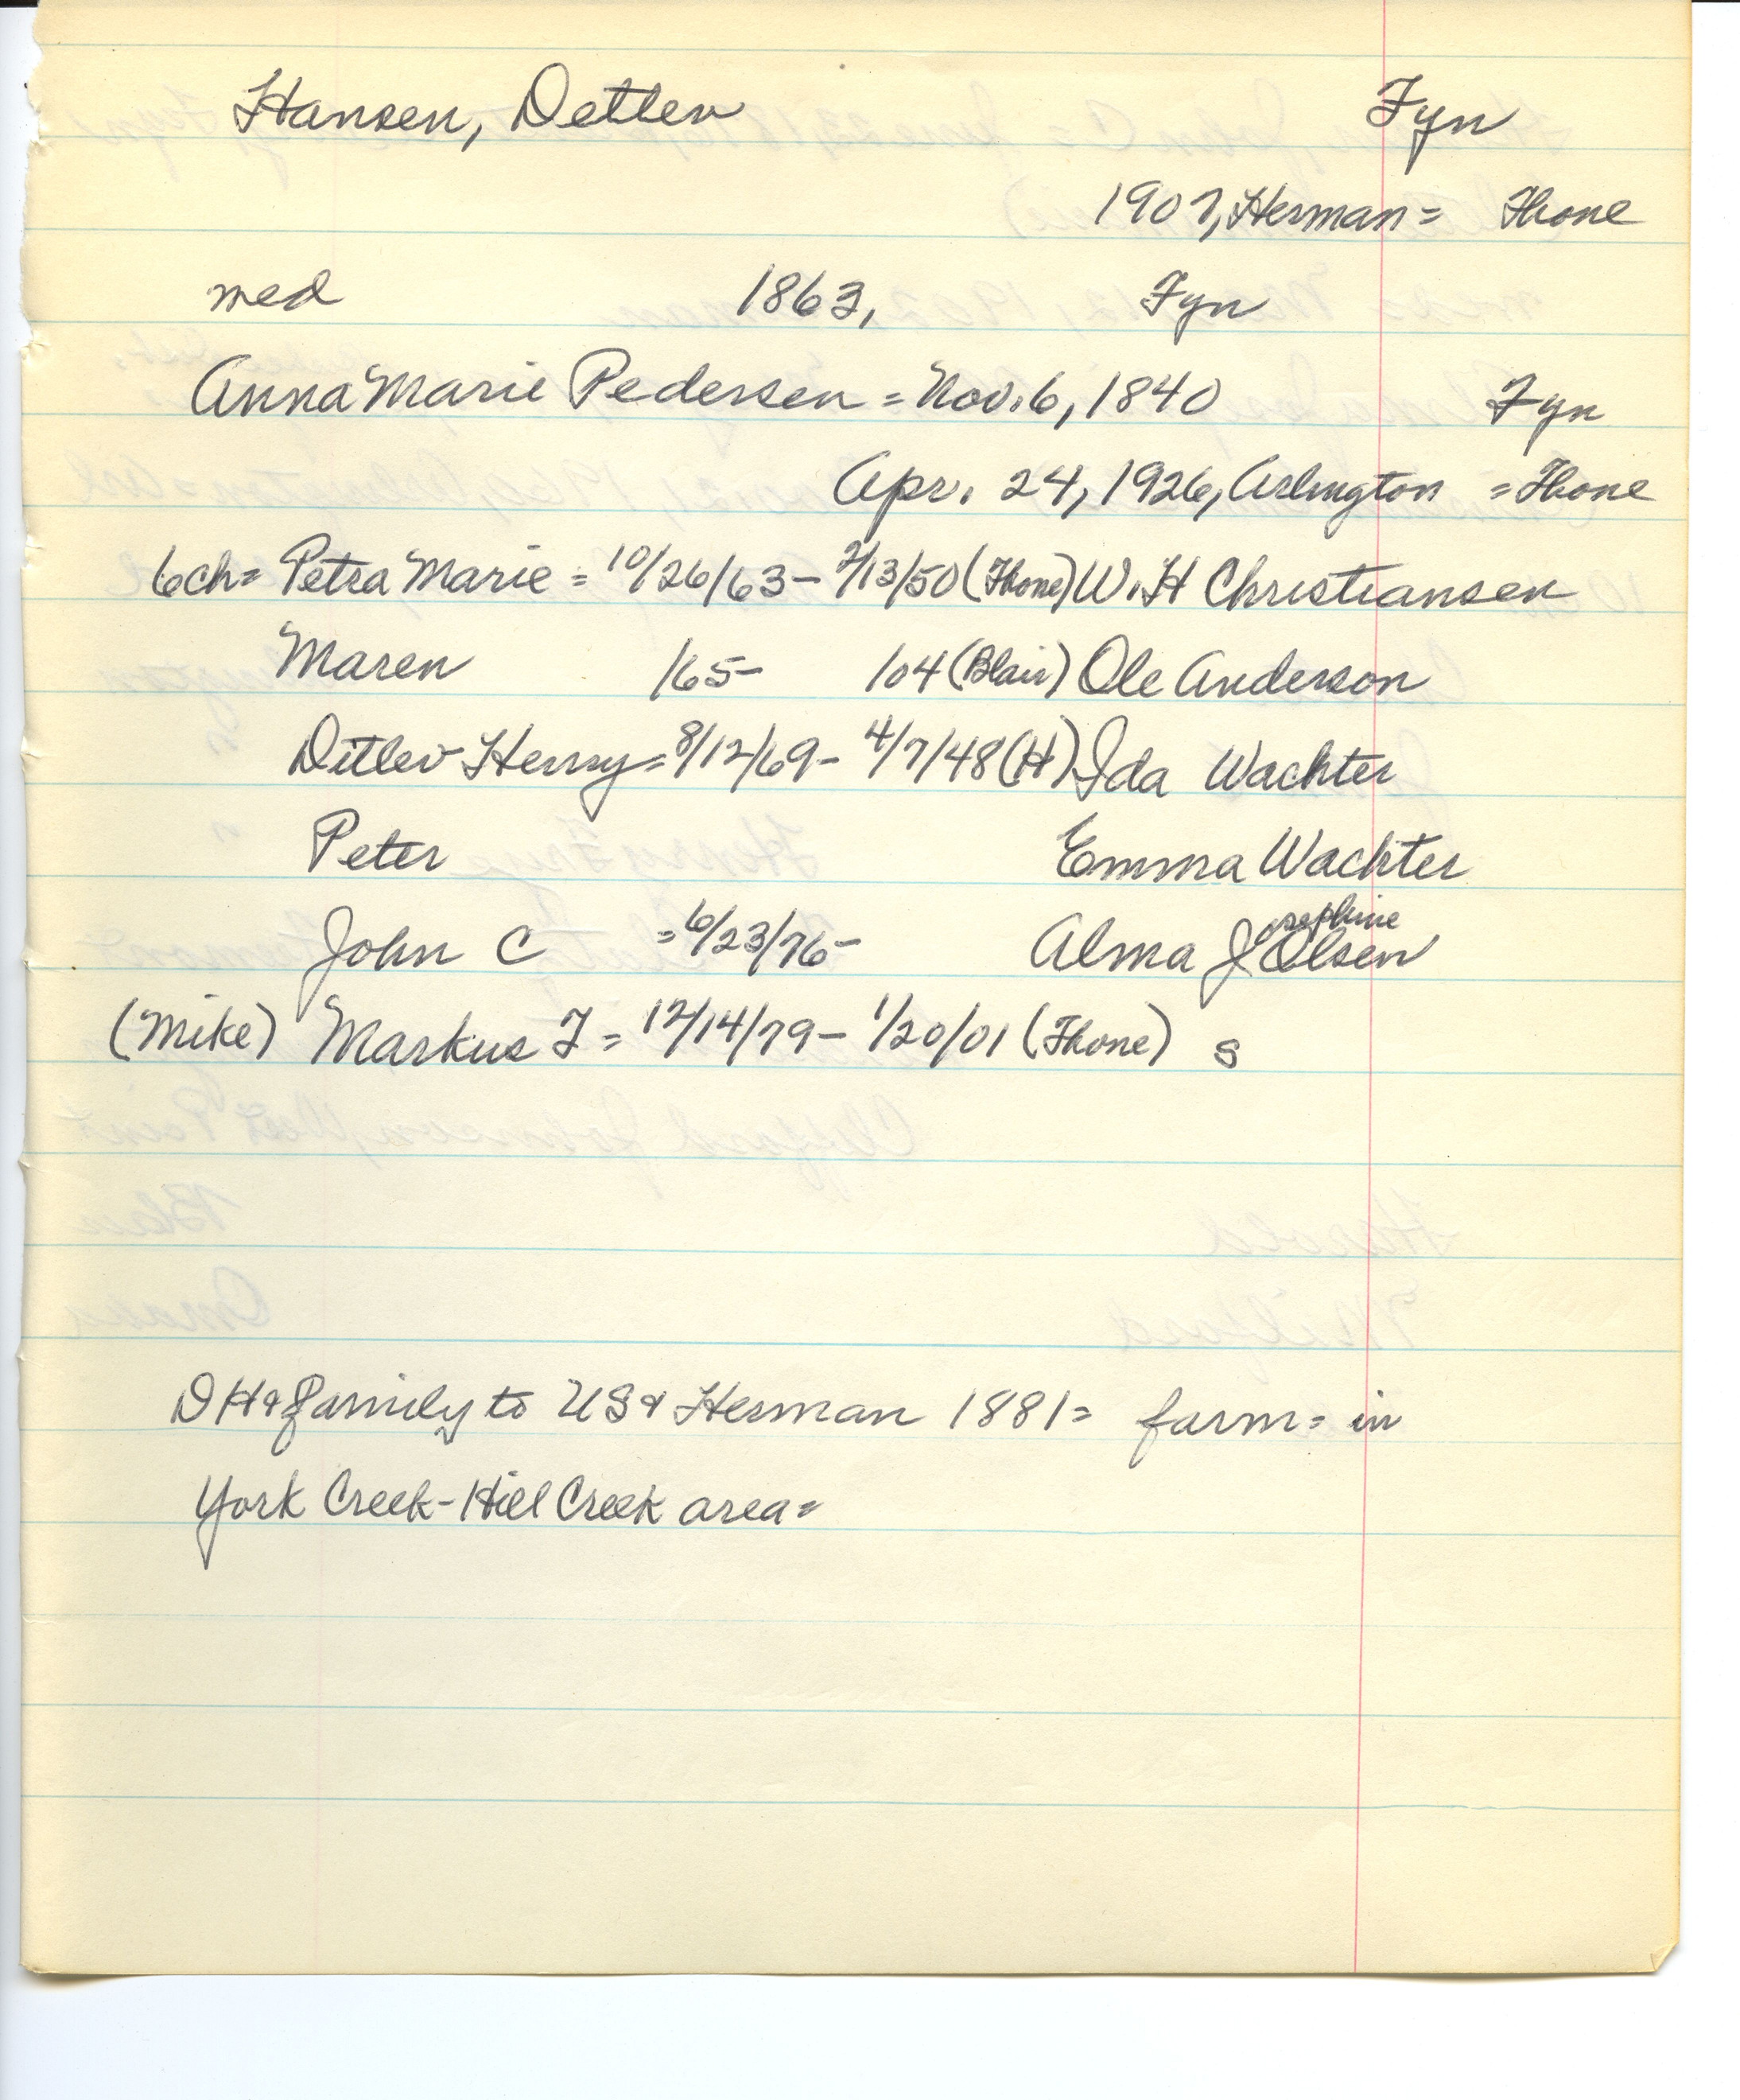 Hansen, Detlev Fyn
1907, Herman = Fhone
med 1863, Fyn
Anna Marie Pedersen = Nov. 6, 1840 Fyn
Apr. 24, 1926, Arlington = Fhone
6ch = Petra Marie = 10/26/63 - 2/13/50 (Fhone) W. H Christiansen
Maren /65- /04 (Blair) Ole Anderson
Ditlev Henry = 8/12/69 - 4/7/48 (H) Ida Wachter
Peter Emma Wachter
John C = 6/23/76 - Alma Josephine Olsen
(Mike) Markus F = 12/14/79 - 1/20/01 (Fhone) s
D H & family to US & Herman 1881 = farm = in
York Creek - Hill Creek area =